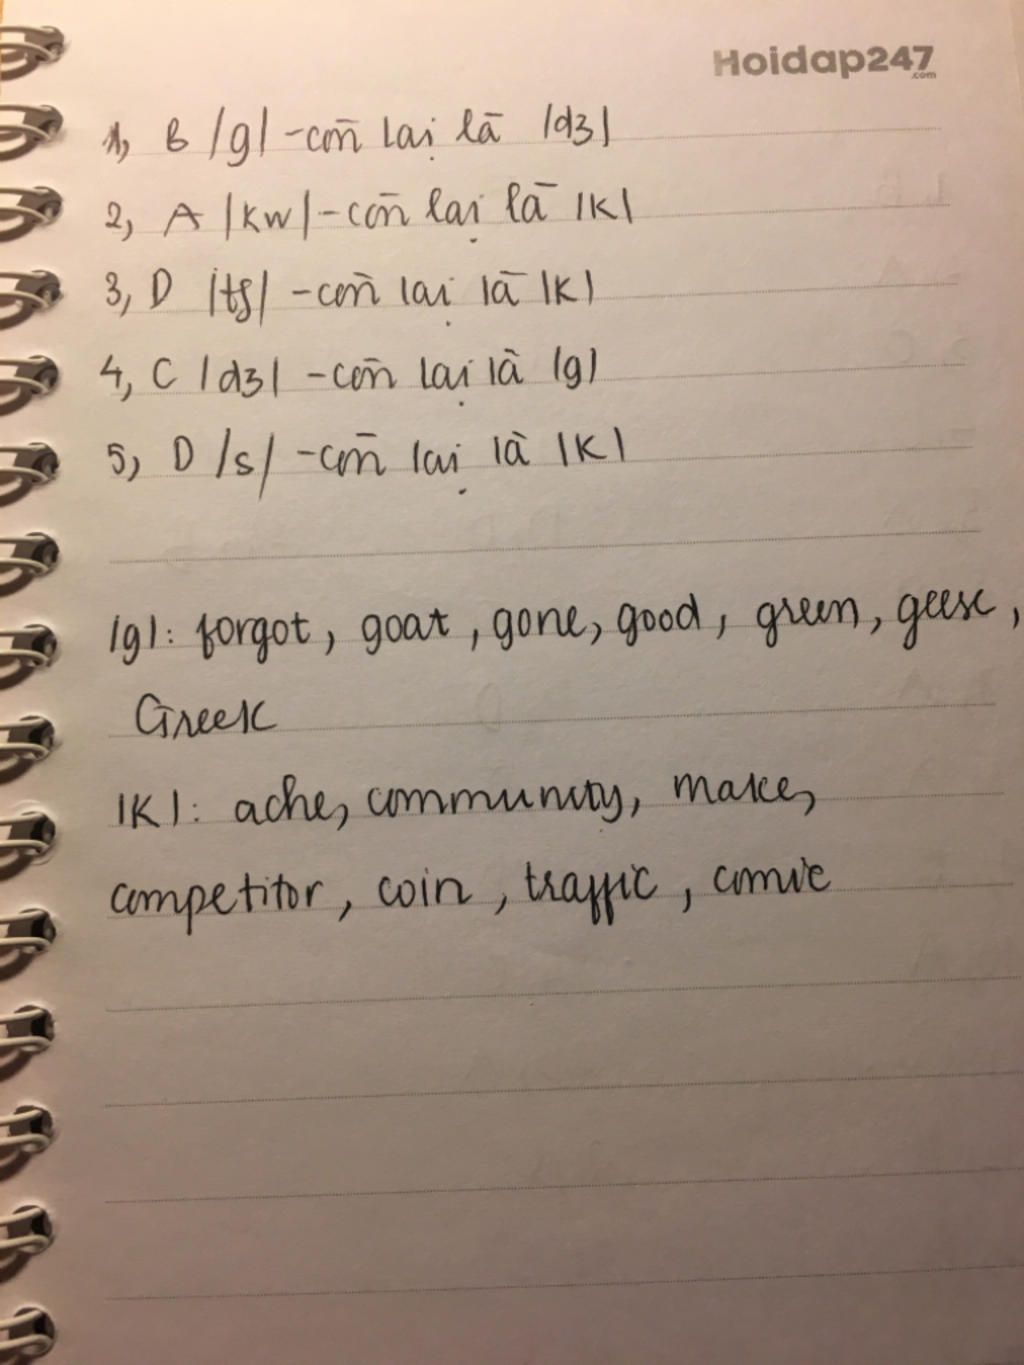 Hoidap247
.com
1, B /g/ - còn lại là /dʒ/
2, A /kw/ - còn lại là /k/
3, D /tʃ/ - còn lại là /k/
4, C /dʒ/ - còn lại là /g/
5, D /s/ - còn lại là /k/
/g/: forgot, goat, gone, good, green, geese,
Greek
/k/: ache, community, make,
competitor, coin, traffic, comic